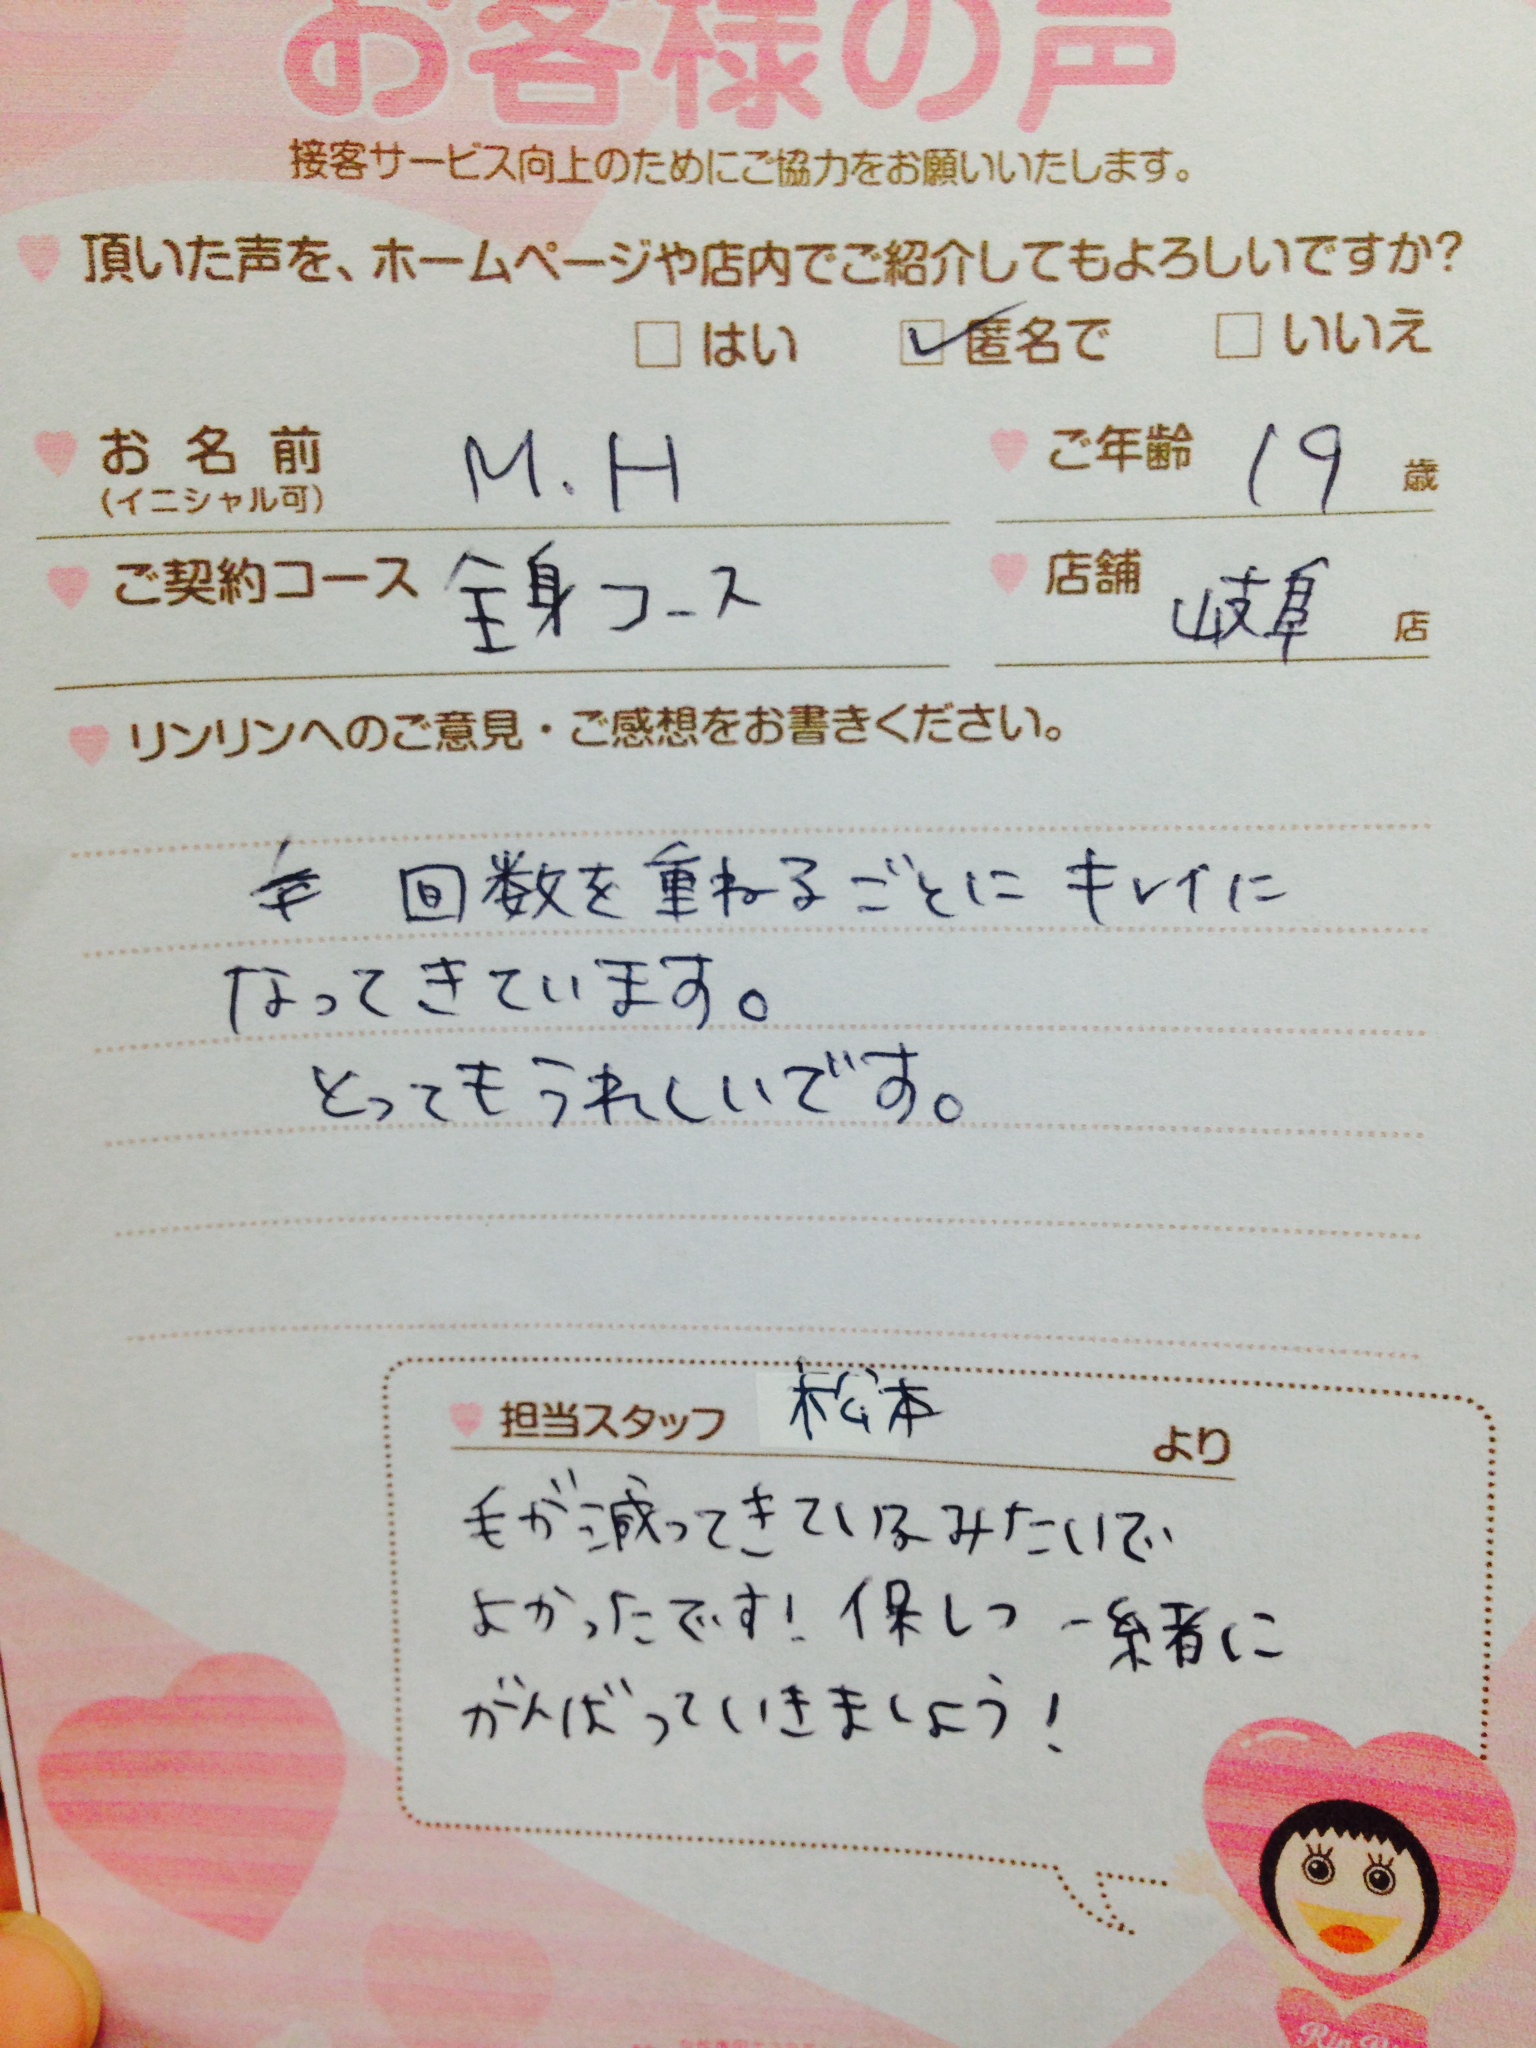 お客様の声
接客サービス向上のためにご協力をお願いいたします。
頂いた声を、ホームページや店内でご紹介してもよろしいですか?
□はい ☑匿名で □いいえ
お名前 M.H ご年齢 19 歳
(イニシャル可)
ご契約コース 全身コース 店舗 岐阜 店
リンリンへのご意見・ご感想をお書きください。
回数を重ねるごとにキレイに
なってきています。
とってもうれしいです。
担当スタッフ 松本 より
毛が減ってきているみたいで
よかったです! 保しつ 一緒に
がんばっていきましょう!